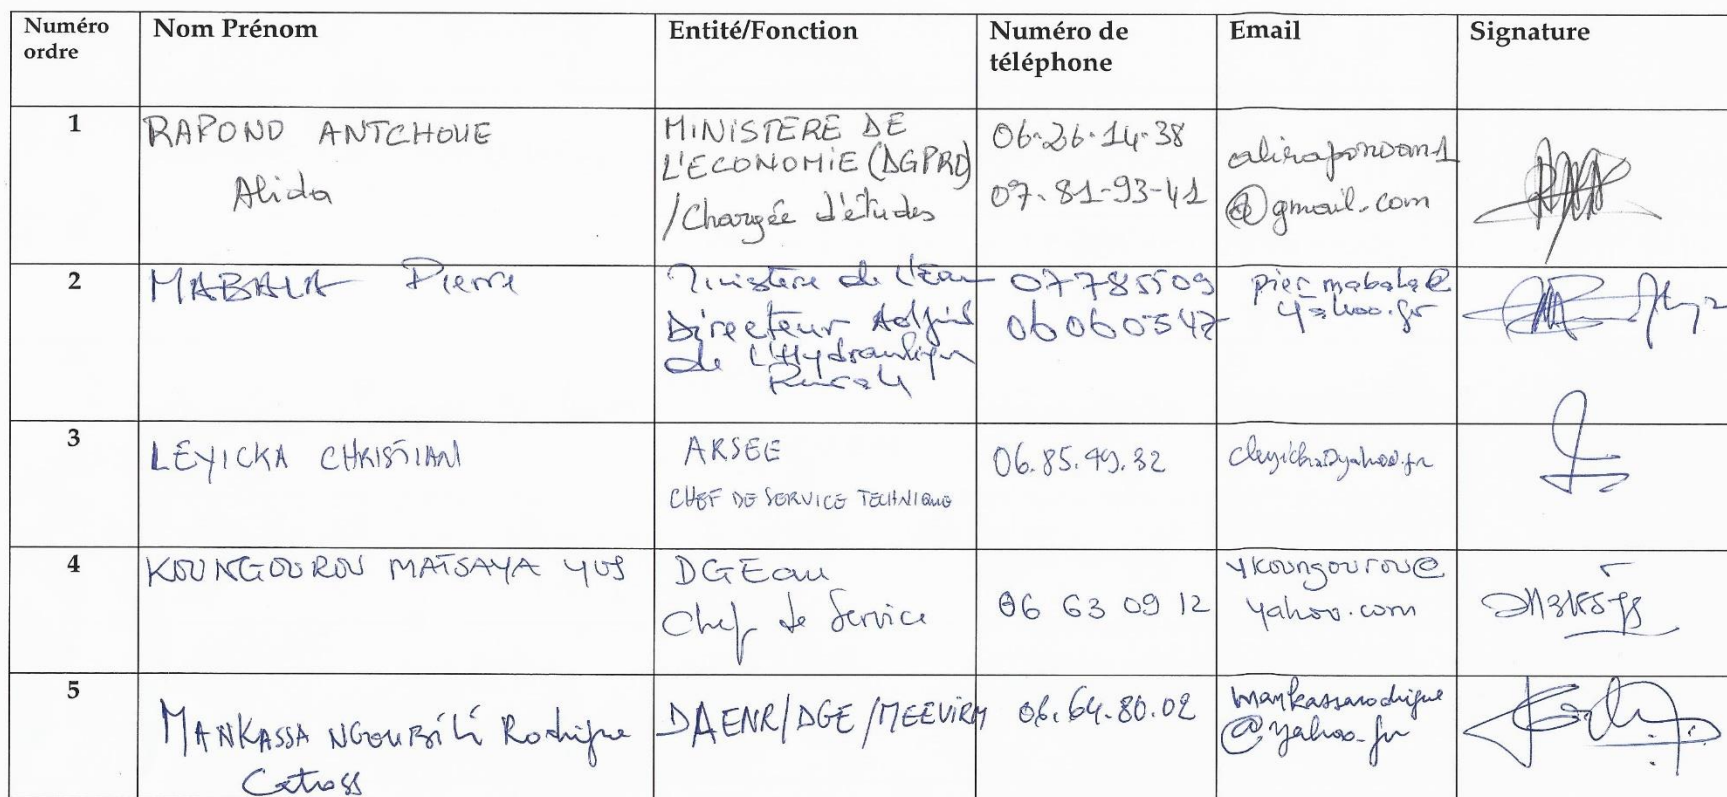 Numéro ordre | Nom Prénom | Entité/Fonction | Numéro de téléphone | Email | Signature
1 | RAPOND ANTCHOUE Alida | MINISTERE DE L'ECONOMIE (DGPRD) /Chargée d'études | 06-26-14-38 07-81-93-41 | alirapondam1 @gmail.com
2 | MABALA Pierre | Ministère de l'Eau Directeur Adjoint de l'Hydraulique Rurale | 07785509 06060547 | pier_mabala@ yahoo.fr
3 | LEYICKA CHRISTIAN | ARSEE CHEF DE SERVICE TECHNIQUE | 06.85.49.32 | cleyicka@yahoo.fr
4 | KOUNGOUROU MATSAYA | DGEau Chef de Service | 06 63 09 12 | ykoungourou@ yahoo.com
5 | MANKASSA NGOUBILI Rodrigue | DAENR/DGE/MEEVIRM | 06.64.80.02 | mankassarodrigue @yahoo.fr